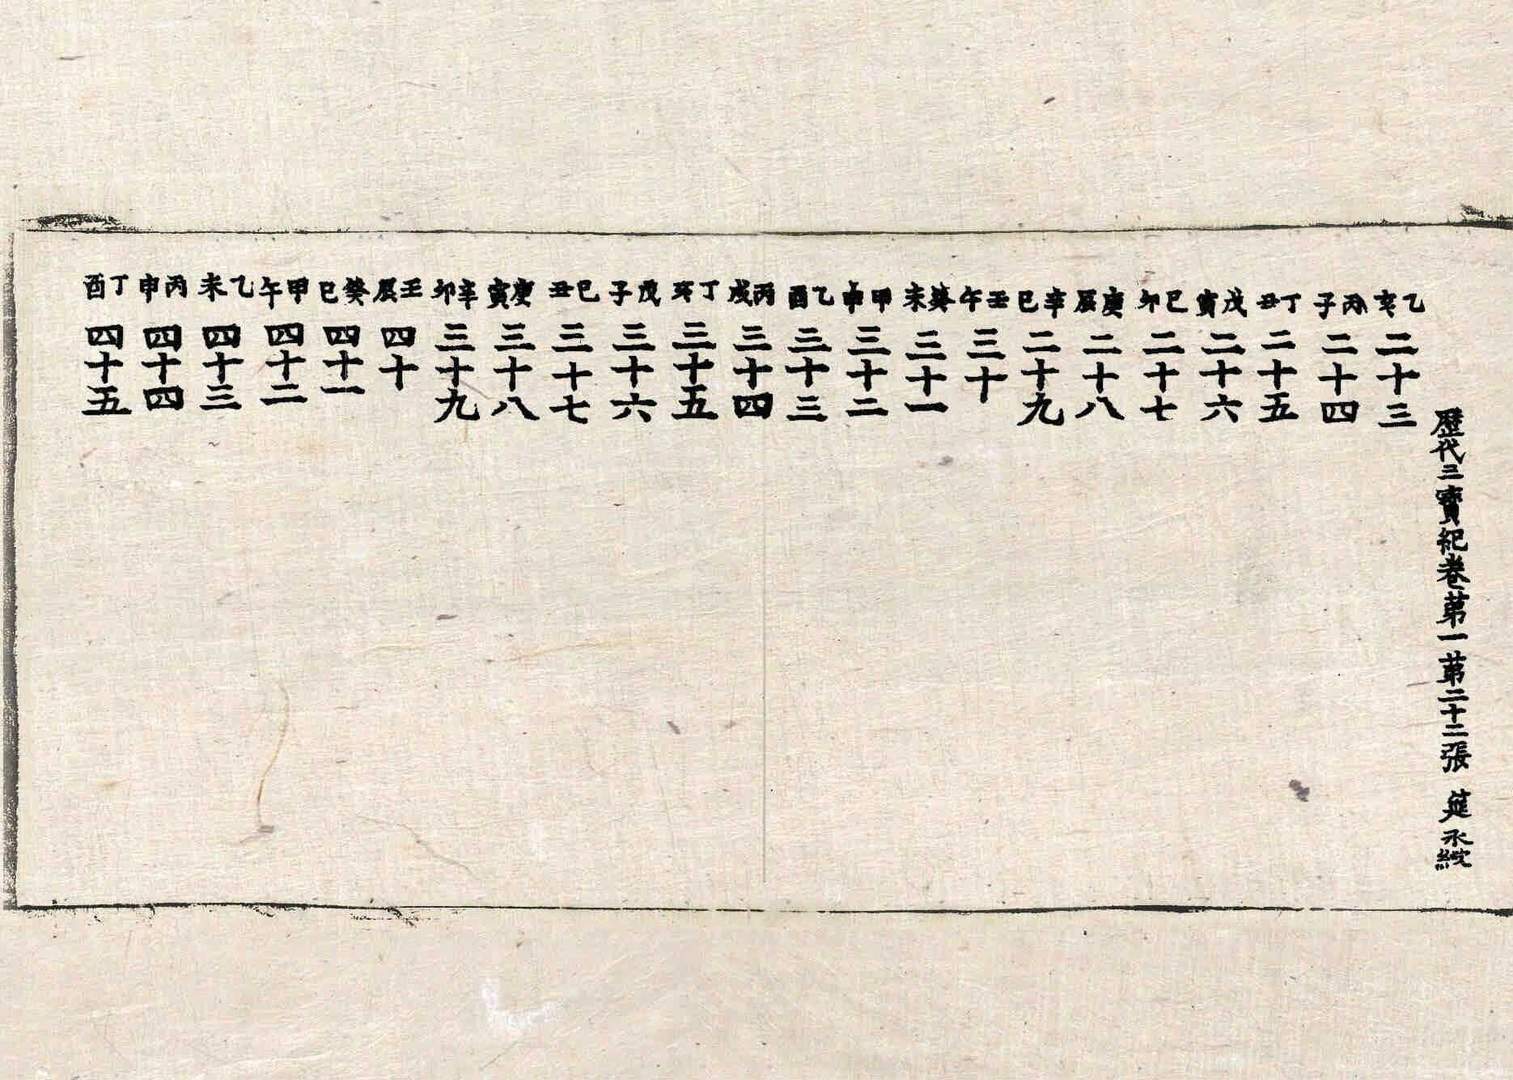 歷代三寶紀卷第一 第二十二張 莚 永
乙亥 二十三
丙子 二十四
丁丑 二十五
戊寅 二十六
己卯 二十七
庚辰 二十八
辛巳 二十九
壬午 三十
癸未 三十一
甲申 三十二
乙酉 三十三
丙戌 三十四
丁亥 三十五
戊子 三十六
己丑 三十七
庚寅 三十八
辛卯 三十九
壬辰 四十
癸巳 四十一
甲午 四十二
乙未 四十三
丙申 四十四
丁酉 四十五